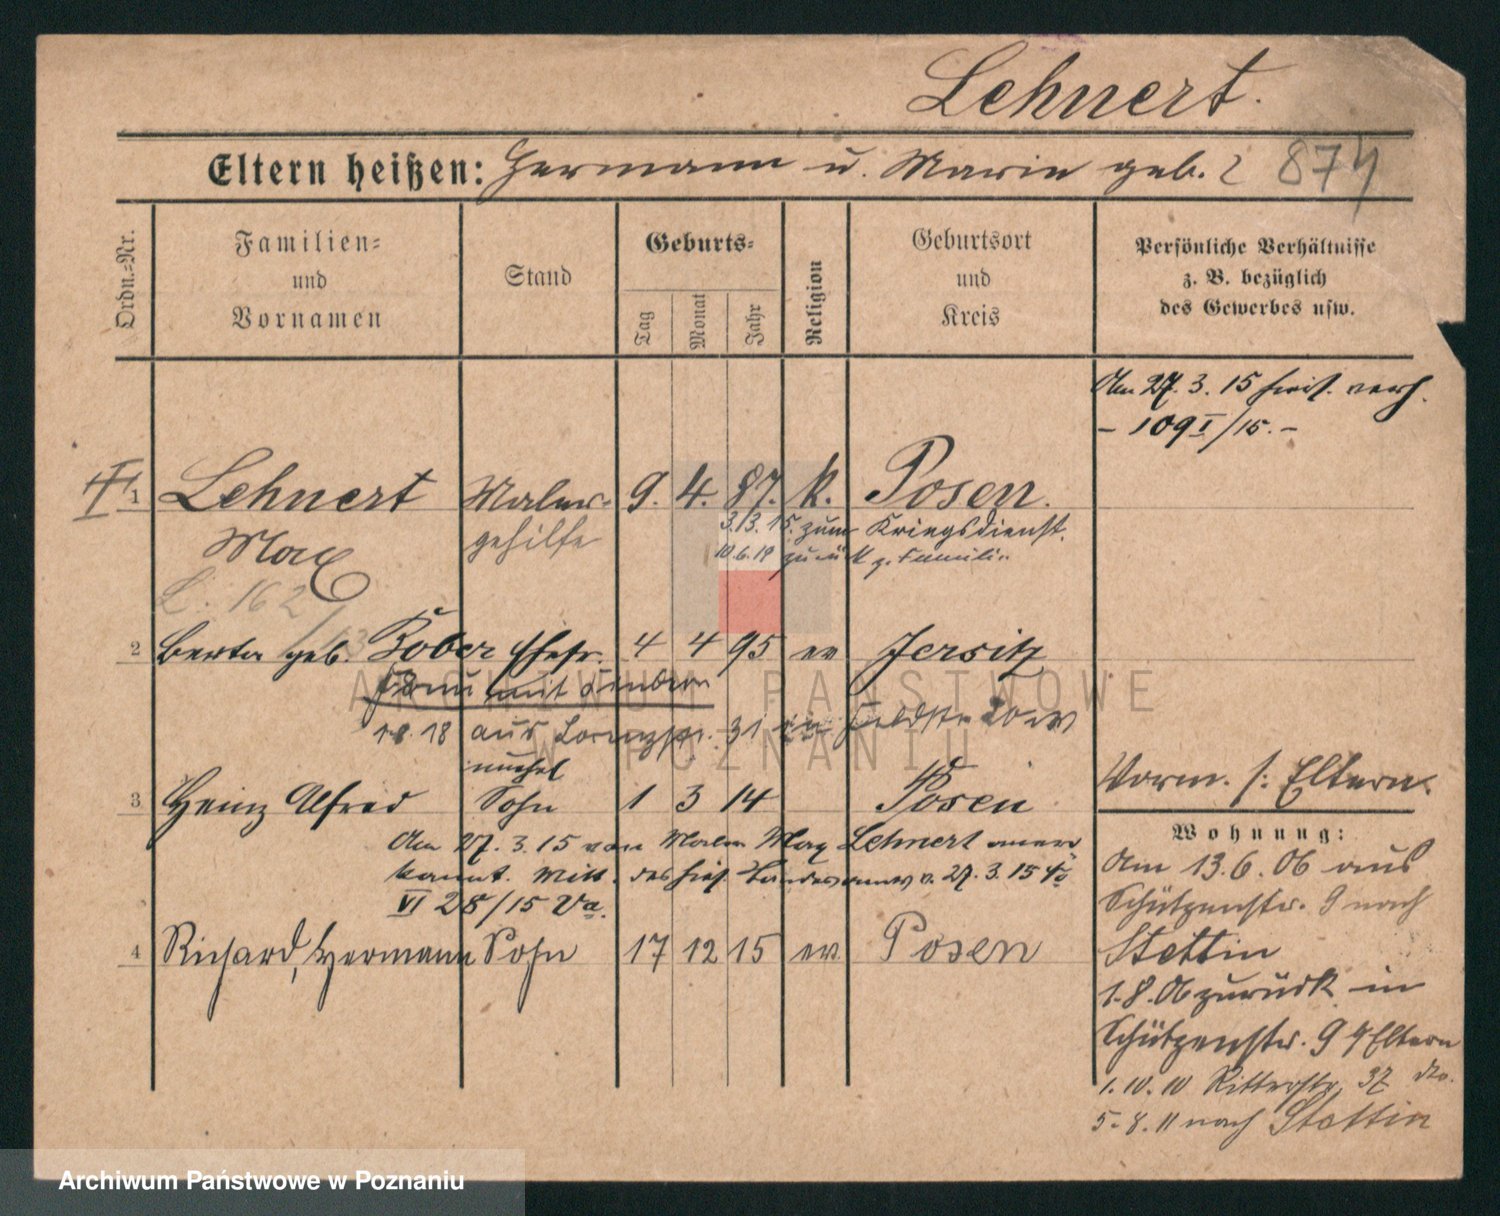 Lehnert.
Eltern heißen: Hermann u. Marie geb. ? 874
Ordn.=Nr.
Familien=
und
Vornamen
Stand
Geburts=
Tag
Monat
Jahr
Religion
Geburtsort
und
Kreis
Persönliche Verhältnisse
z. B. bezüglich
des Gewerbes usw.
Am 27. 3. 15 verh.
– 109 I/15. –
1 Lehnert Maler= 9. 4. 87. k. Posen.
Max gehilfe
3.3.15. zum Kriegsdienst.
10.6.18 zurück z. Familie
L. 162
2 Berta geb. Kober Ehefr. 4 4 95 ev Jersitz
Frau mit Kindern
1.8.18 aus 31 in
unehel
3 Heinz Alfred Sohn 1 3 14 Posen
Am 27. 3. 15 von Maler Max Lehnert aner
kannt. Mitt. des v. 27. 3. 15
VI 28/15 Va.
4 Richard, Hermann Sohn 17 12 15 ev. Posen
Vorm. s: Eltern.
Wohnung:
Am 13. 6. 06 aus
Schützenstr. 9 nach
Stettin
1. 8. 06 zurück in
Schützenstr. 9 Eltern
1. 10. 10 Ritterstr. 37 do.
5. 8. 11 nach Stettin
ARCHIWUM PAŃSTWOWE
W POZNANIU
Archiwum Państwowe w Poznaniu